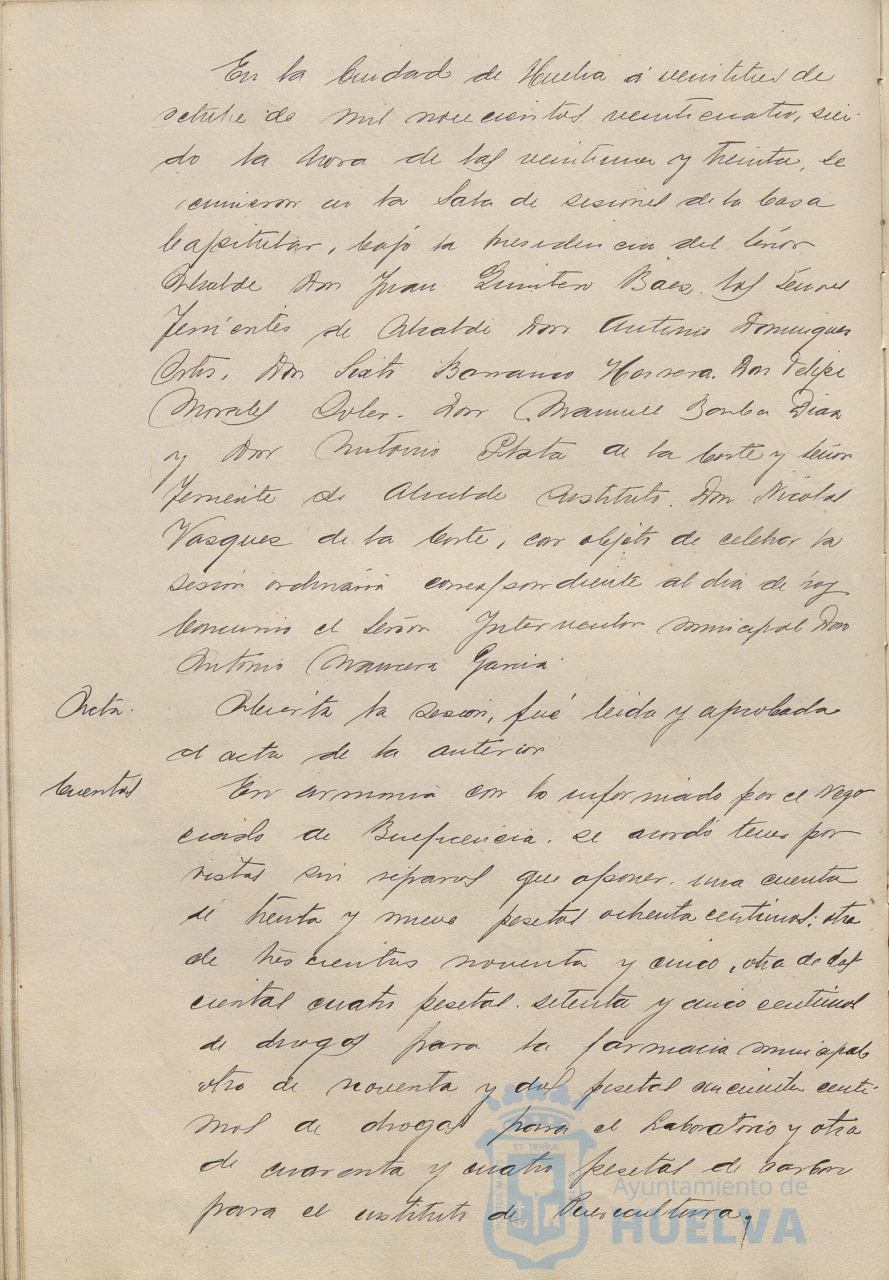 En la Ciudad de Huelva á veintitres de
octubre de mil novecientos veinticuatro, sien-
do la hora de las veintiuna y treinta, se
reunieron en la Sala de sesiones de la Casa
Capitular, bajo la presidencia del Señor
Alcalde Don Juan Quintero Baez los Señores
Tenientes de Alcalde Don Antonio Dominguez
Ortiz, Don Sixto Barranco Herrera, Don Felipe
Morales Soler, Don Manuel Borba Diaz
y Don Antonio Plata de la Corte y Señor
Teniente de Alcalde sustituto, Don Nicolas
Vasquez de la Corte, con objeto de celebrar la
sesion ordinaria correspondiente al dia de hoy
Concurrio el Señor Interventor municipal Don
Antonio Mancera Garcia.
Acta. Abierta la sesion, fué leida y aprobada
el acta de la anterior
Cuentas En armonia con lo informado por el nego
ciado de Beneficencia, se acordó tener por
vistas sin reparos que oponer, una cuenta
de treinta y nueve pesetas ochenta centimos; otra
de trescientas noventa y cinco, otra de dos
cientas cuatro pesetas setenta y cinco centimos
de drogas para la farmacia municipal
otra de noventa y dos pesetas cincuenta centi-
mos de drogas para el Laboratorio y otra
de cuarenta y cuatro pesetas de carbon
para el instituto de Puericultura,
Ayuntamiento de
HUELVA